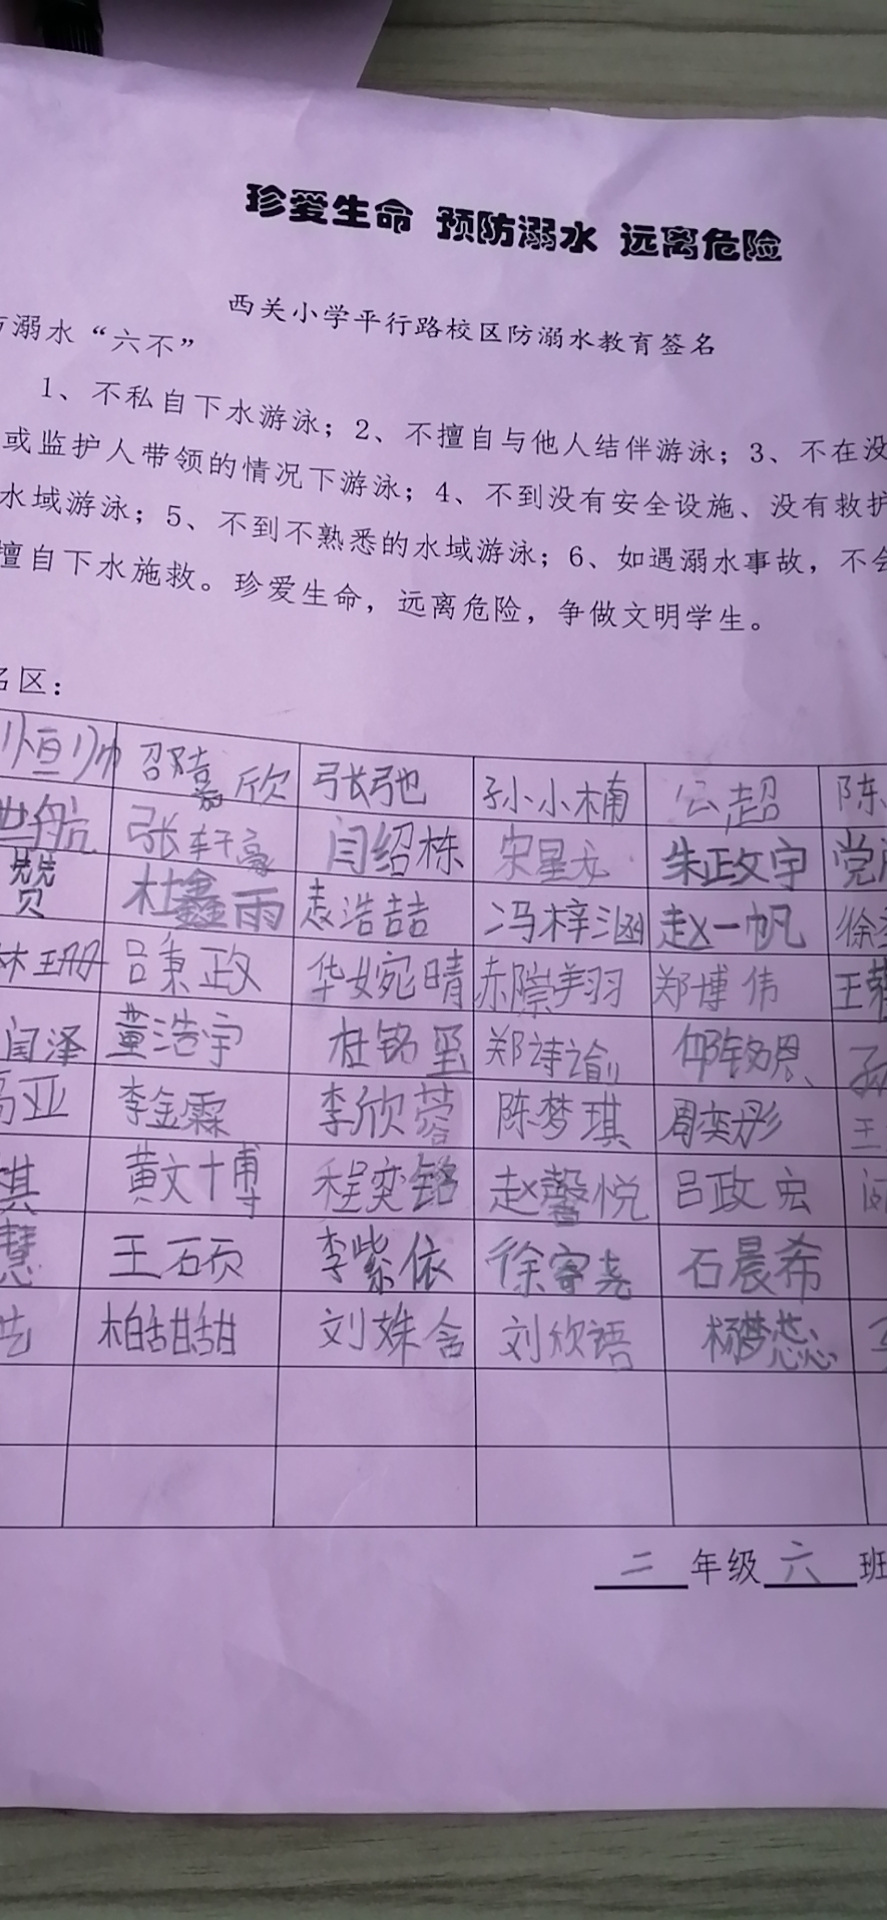 珍爱生命 预防溺水 远离危险
西关小学平行路校区防溺水教育签名
防溺水“六不”
1、不私自下水游泳；2、不擅自与他人结伴游泳；3、不在没
或监护人带领的情况下游泳；4、不到没有安全设施、没有救护
水域游泳；5、不到不熟悉的水域游泳；6、如遇溺水事故，不会
擅自下水施救。珍爱生命，远离危险，争做文明学生。
名区：
恒帅 欣 张弛 孙小楠 公超 陈
世航 张轩豪 闫绍栋 宋星 朱政宇 党
赞 杜鑫雨 袁浩喆 冯梓涵 赵一帆 徐
林珊 吕秉政 华婉晴 赤 羽 郑博伟 王
闫泽 董浩宇 杜铭 郑诗谕 铭恩 孙
亚 李金霖 李欣蓉 陈梦琪 周奕彤 王
棋 黄文博 程奕铭 赵馨悦 吕政宏
慧 王硕 李紫依 徐 尧 石晨希
柏甜甜 刘姝含 刘欣语 杨梦蕊
二年级六班